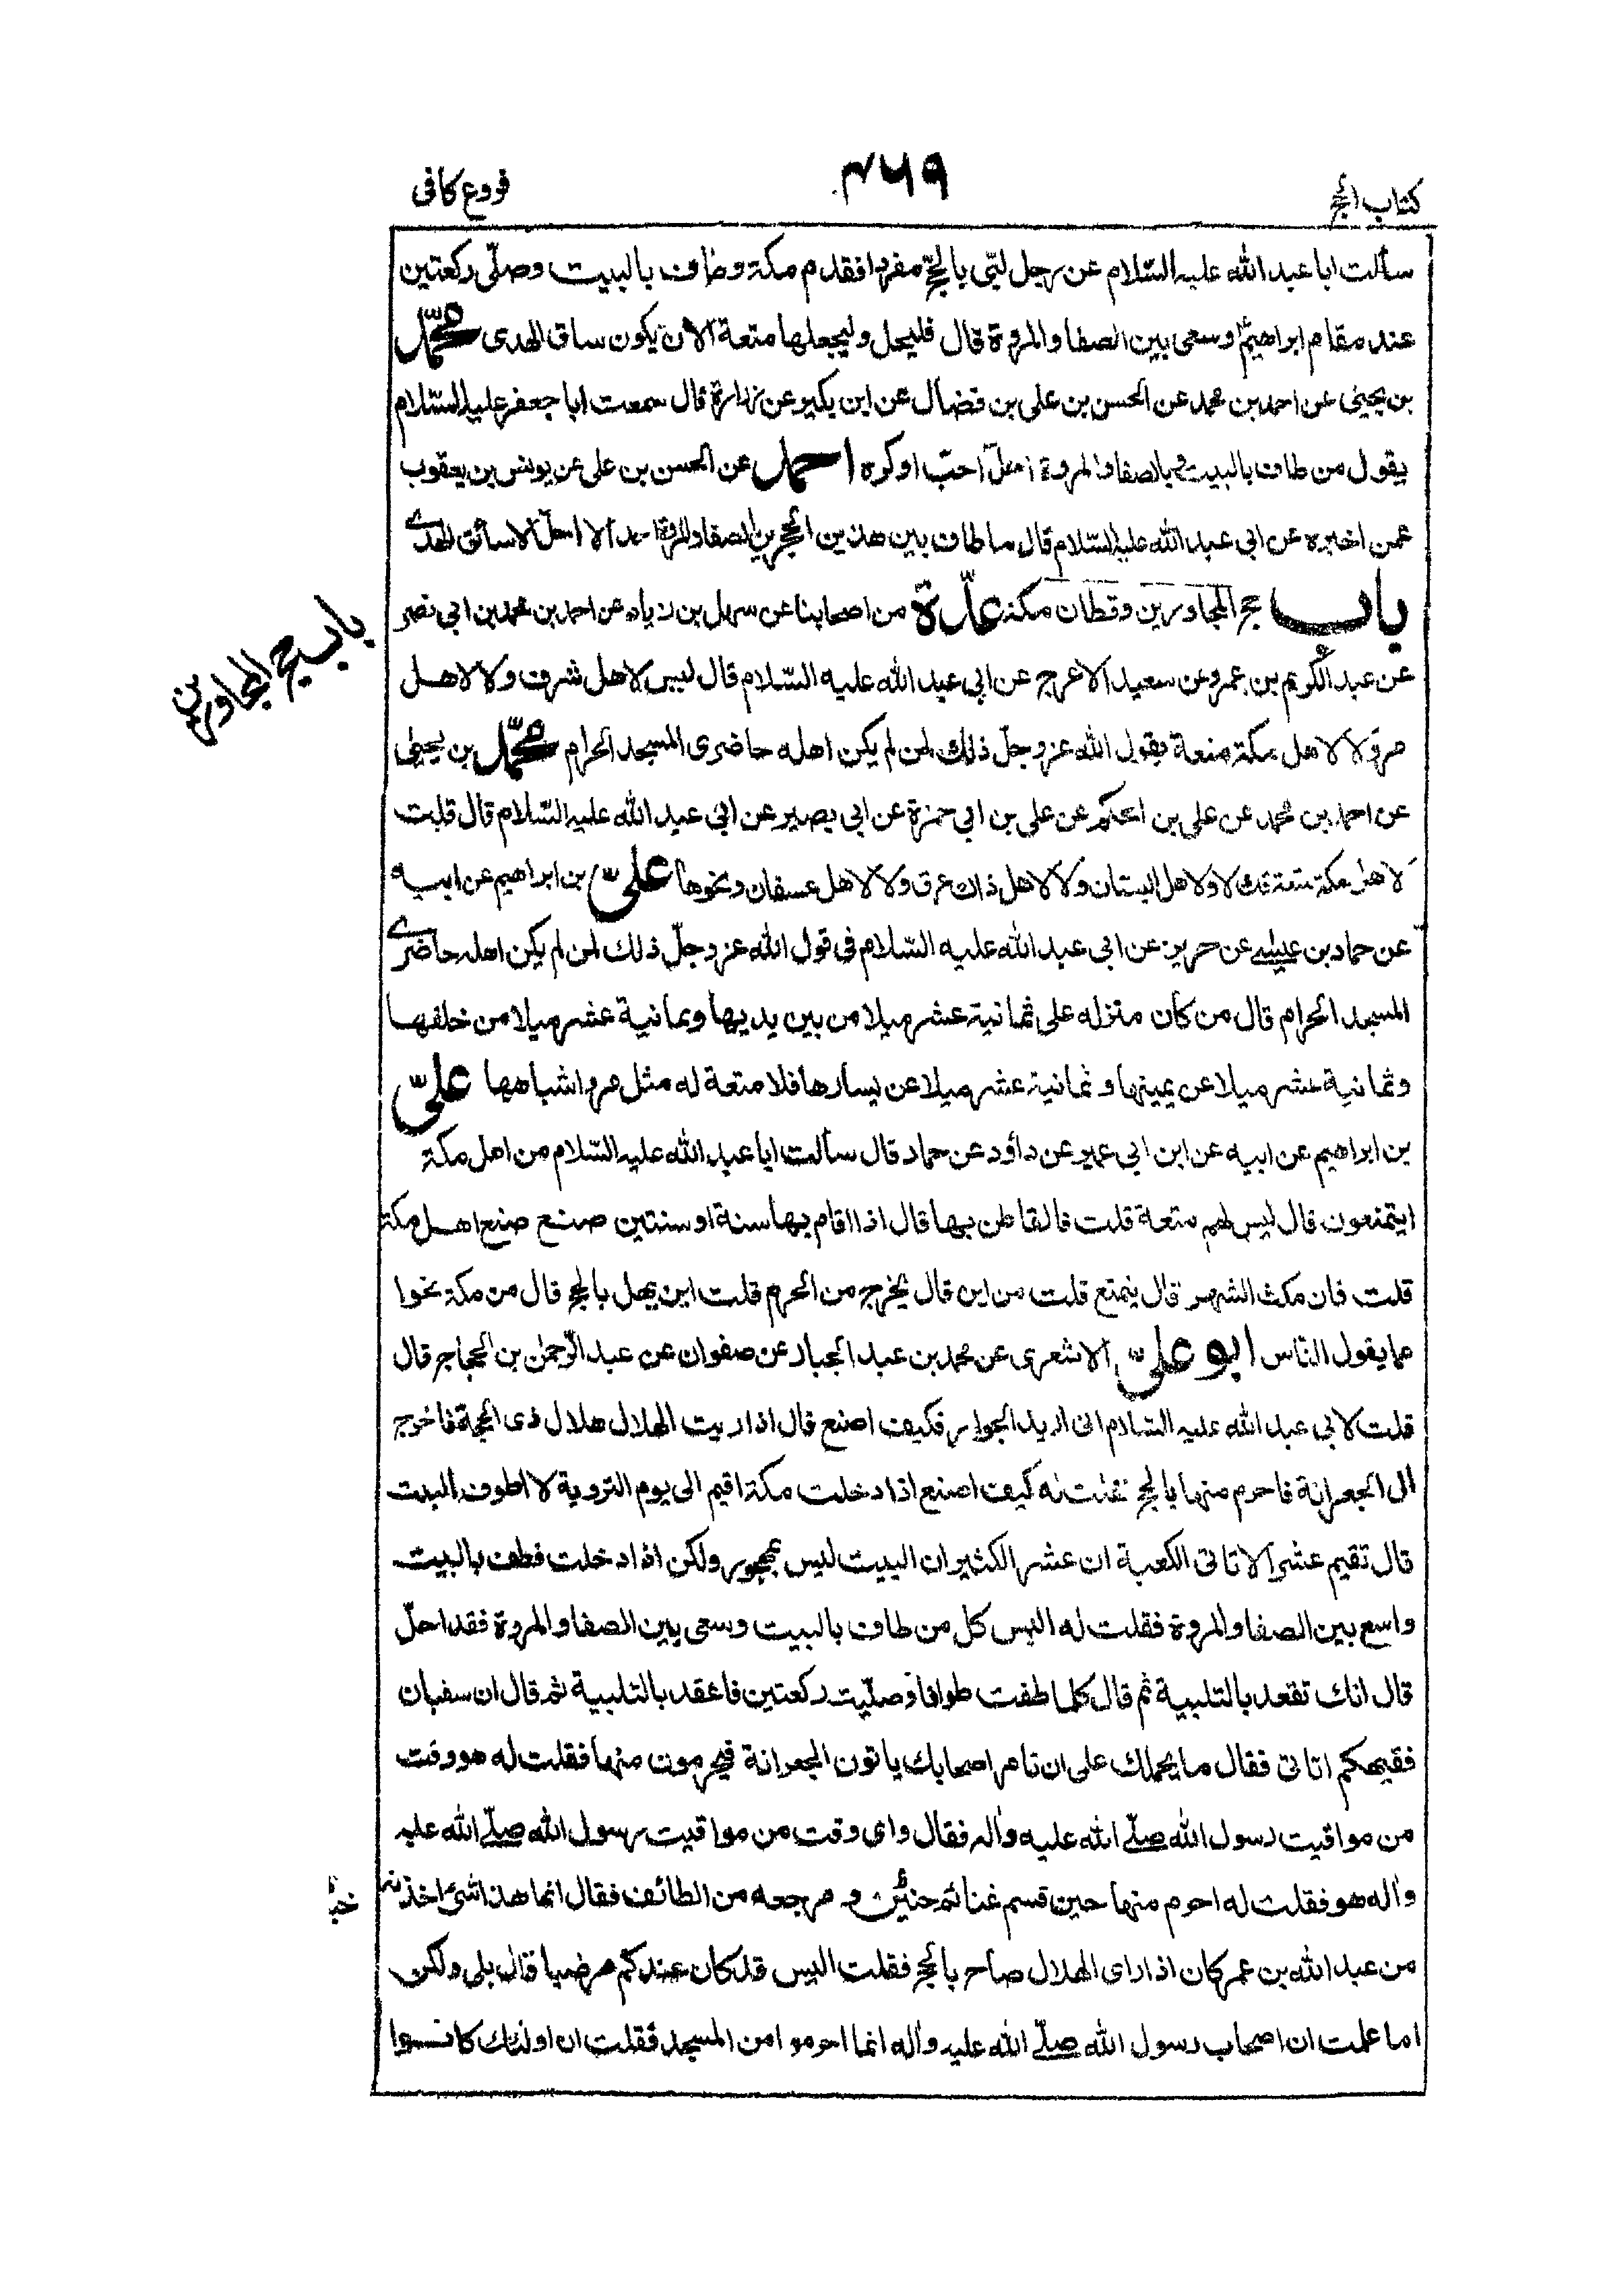 كتاب الحج
٤٦٩
فروع كافى
سألت ابا عبد الله عليه السّلام عن رجل لبّى بالحجّ مفردا فقدم مكة وطاف بالبيت وصلّى ركعتين
عند مقام ابراهيمؑ وسعى بين الصفا والمروة قال فليحل وليجعلها متعة الا ان يكون ساق الهدى محمّد
بن يحيى عن احمد بن محمد عن الحسن بن على بن فضال عن ابن بكير عن زرارة قال سمعت ابا جعفر عليه السّلام
يقول من طاف بالبيت وبالصفا والمروة احلّ احبّ اوكره احمد عن الحسن بن على عن يونس بن يعقوب
عمن اخبره عن ابى عبد الله عليه السّلام قال ما طاف بين هذين الحجرين الصفا والمروة احد الا احلّ الا سائق الهدى
باب حج المجاورين وقطان مكة عدّة من اصحابنا عن سهل بن زياد عن احمد بن محمد بن ابى نصر
باب حج المجاورين
عن عبد الكريم بن عمرو عن سعيد الاعرج عن ابى عبد الله عليه السّلام قال ليس لاهل شرف ولا لاهل
مر ولا لاهل مكة متعة يقول الله عزوجلّ ذلك لمن لم يكن اهله حاضرى المسجد الحرام محمّد بن يحيى
عن احمد بن محمد عن على بن الحكم عن على بن ابى حمزة عن ابى بصير عن ابى عبد الله عليه السّلام قال قلت
لاهل مكة متعة قال لا ولا لاهل البستان ولا لاهل ذات عرق ولا لاهل عسفان ونحوها علىّ بن ابراهيم عن ابيه
عن حماد بن عيسى عن حريز عن ابى عبد الله عليه السّلام فى قول الله عزوجلّ ذلك لمن لم يكن اهله حاضرى
المسجد الحرام قال من كان منزله على ثمانية عشر ميلا من بين يديها وثمانية عشر ميلا من خلفها
وثمانية عشر ميلا عن يمينها وثمانية عشر ميلا عن يسارها فلا متعة له مثل مر واشباهها علىّ
بن ابراهيم عن ابيه عن ابن ابى عمير عن داؤد عن حماد قال سألت ابا عبد الله عليه السّلام من اهل مكة
ايتمتعون قال ليس لهم متعة قلت فالقاطن بها قال اذا اقام بها سنة او سنتين صنع صنع اهل مكة
قلت فان مكث الشهر قال يتمتع قلت من اين قال يخرج من الحرم قلت اين يهل بالحج قال من مكة نحوا
مما يقول الناس ابو علىّ الاشعرى عن محمد بن عبد الجبار عن صفوان عن عبد الرّحمن بن الحجاج قال
قلت لابى عبد الله عليه السّلام انى اريد الجوار فكيف اصنع قال اذا رايت الهلال هلال ذى الحجة فاخرج
الى الجعرانة فاحرم منها بالحج فقلت له كيف اصنع اذا دخلت مكة اقيم الى يوم التروية لا اطوف بالبيت
قال تقيم عشرا لا تاتى الكعبة ان عشر الكثير ان البيت ليس بمهجور ولكن اذا دخلت فطف بالبيت
واسع بين الصفا والمروة فقلت له اليس كل من طاف بالبيت وسعى بين الصفا والمروة فقد احلّ
قال انك تقعد بالتلبية ثم قال كلما طفت طوافا وصلّيت ركعتين فاعقد بالتلبية ثم قال ان سفيان
فقيهكم اتانى فقال ما يحملك على ان تامر اصحابك ياتون الجعرانة فيحرمون منها فقلت له هو وقت
من مواقيت رسول الله صلّى الله عليه واله فقال واى وقت من مواقيت رسول الله صلّى الله عليه
واله هو فقلت له احرم منها حين قسم غنائم حنين و مرجعه من الطائف فقال انما هذا شىء اخذته
من عبد الله بن عمر كان اذا راى الهلال صاح بالحج فقلت اليس قد كان عندكم مرضيا قال بلى ولكن
اما علمت ان اصحاب رسول الله صلّى الله عليه واله انما احرموا من المسجد فقلت ان اولئك كانوا